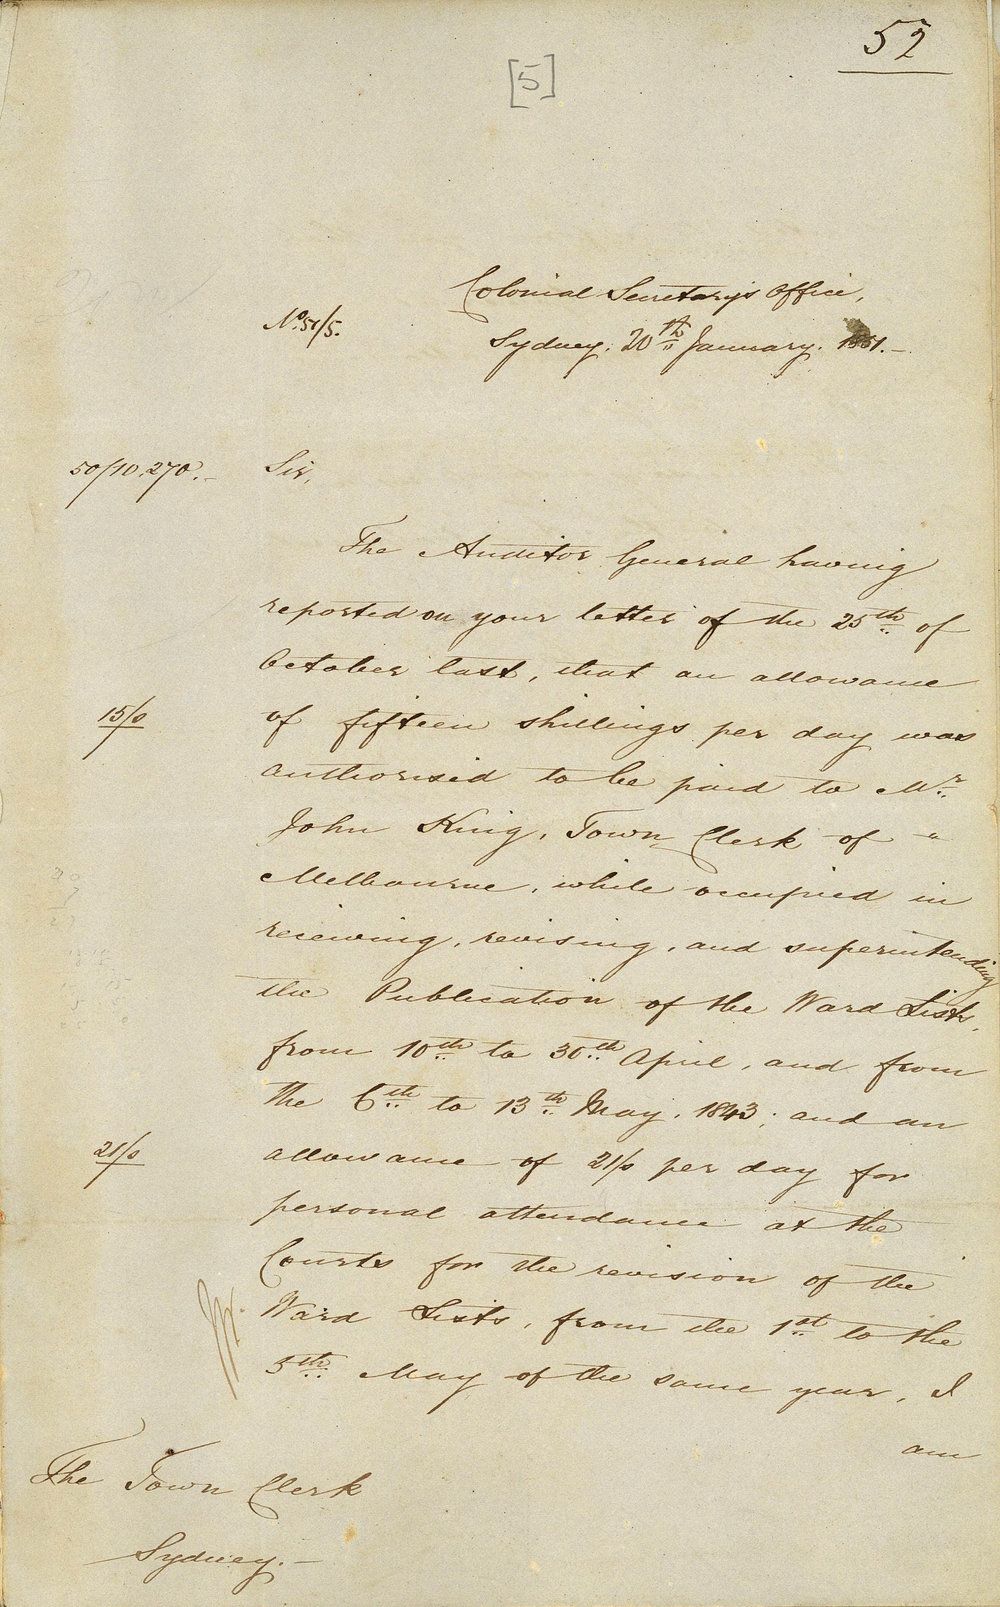 52
[5]
Colonial Secretary's Office,
No. 51/5.
Sydney, 20th January, 1851.—
50/10,270.—
Sir,
The Auditor General having
reported on your letter of the 25th of
October last, that an allowance
15/0
of fifteen shillings per day was
authorised to be paid to Mr
John King, Town Clerk of "
Melbourne, while occupied in
receiving, revising, and superintending
the Publication of the Ward Lists,
from 10th to 30th April, and from
the 6th to 13th May, 1843; and an
21/0
allowance of 21/0 per day for
personal attendance at the
Courts for the revision of the
Ward Lists, from the 1st to the
5th May of the same year, I
am
The Town Clerk
Sydney.—